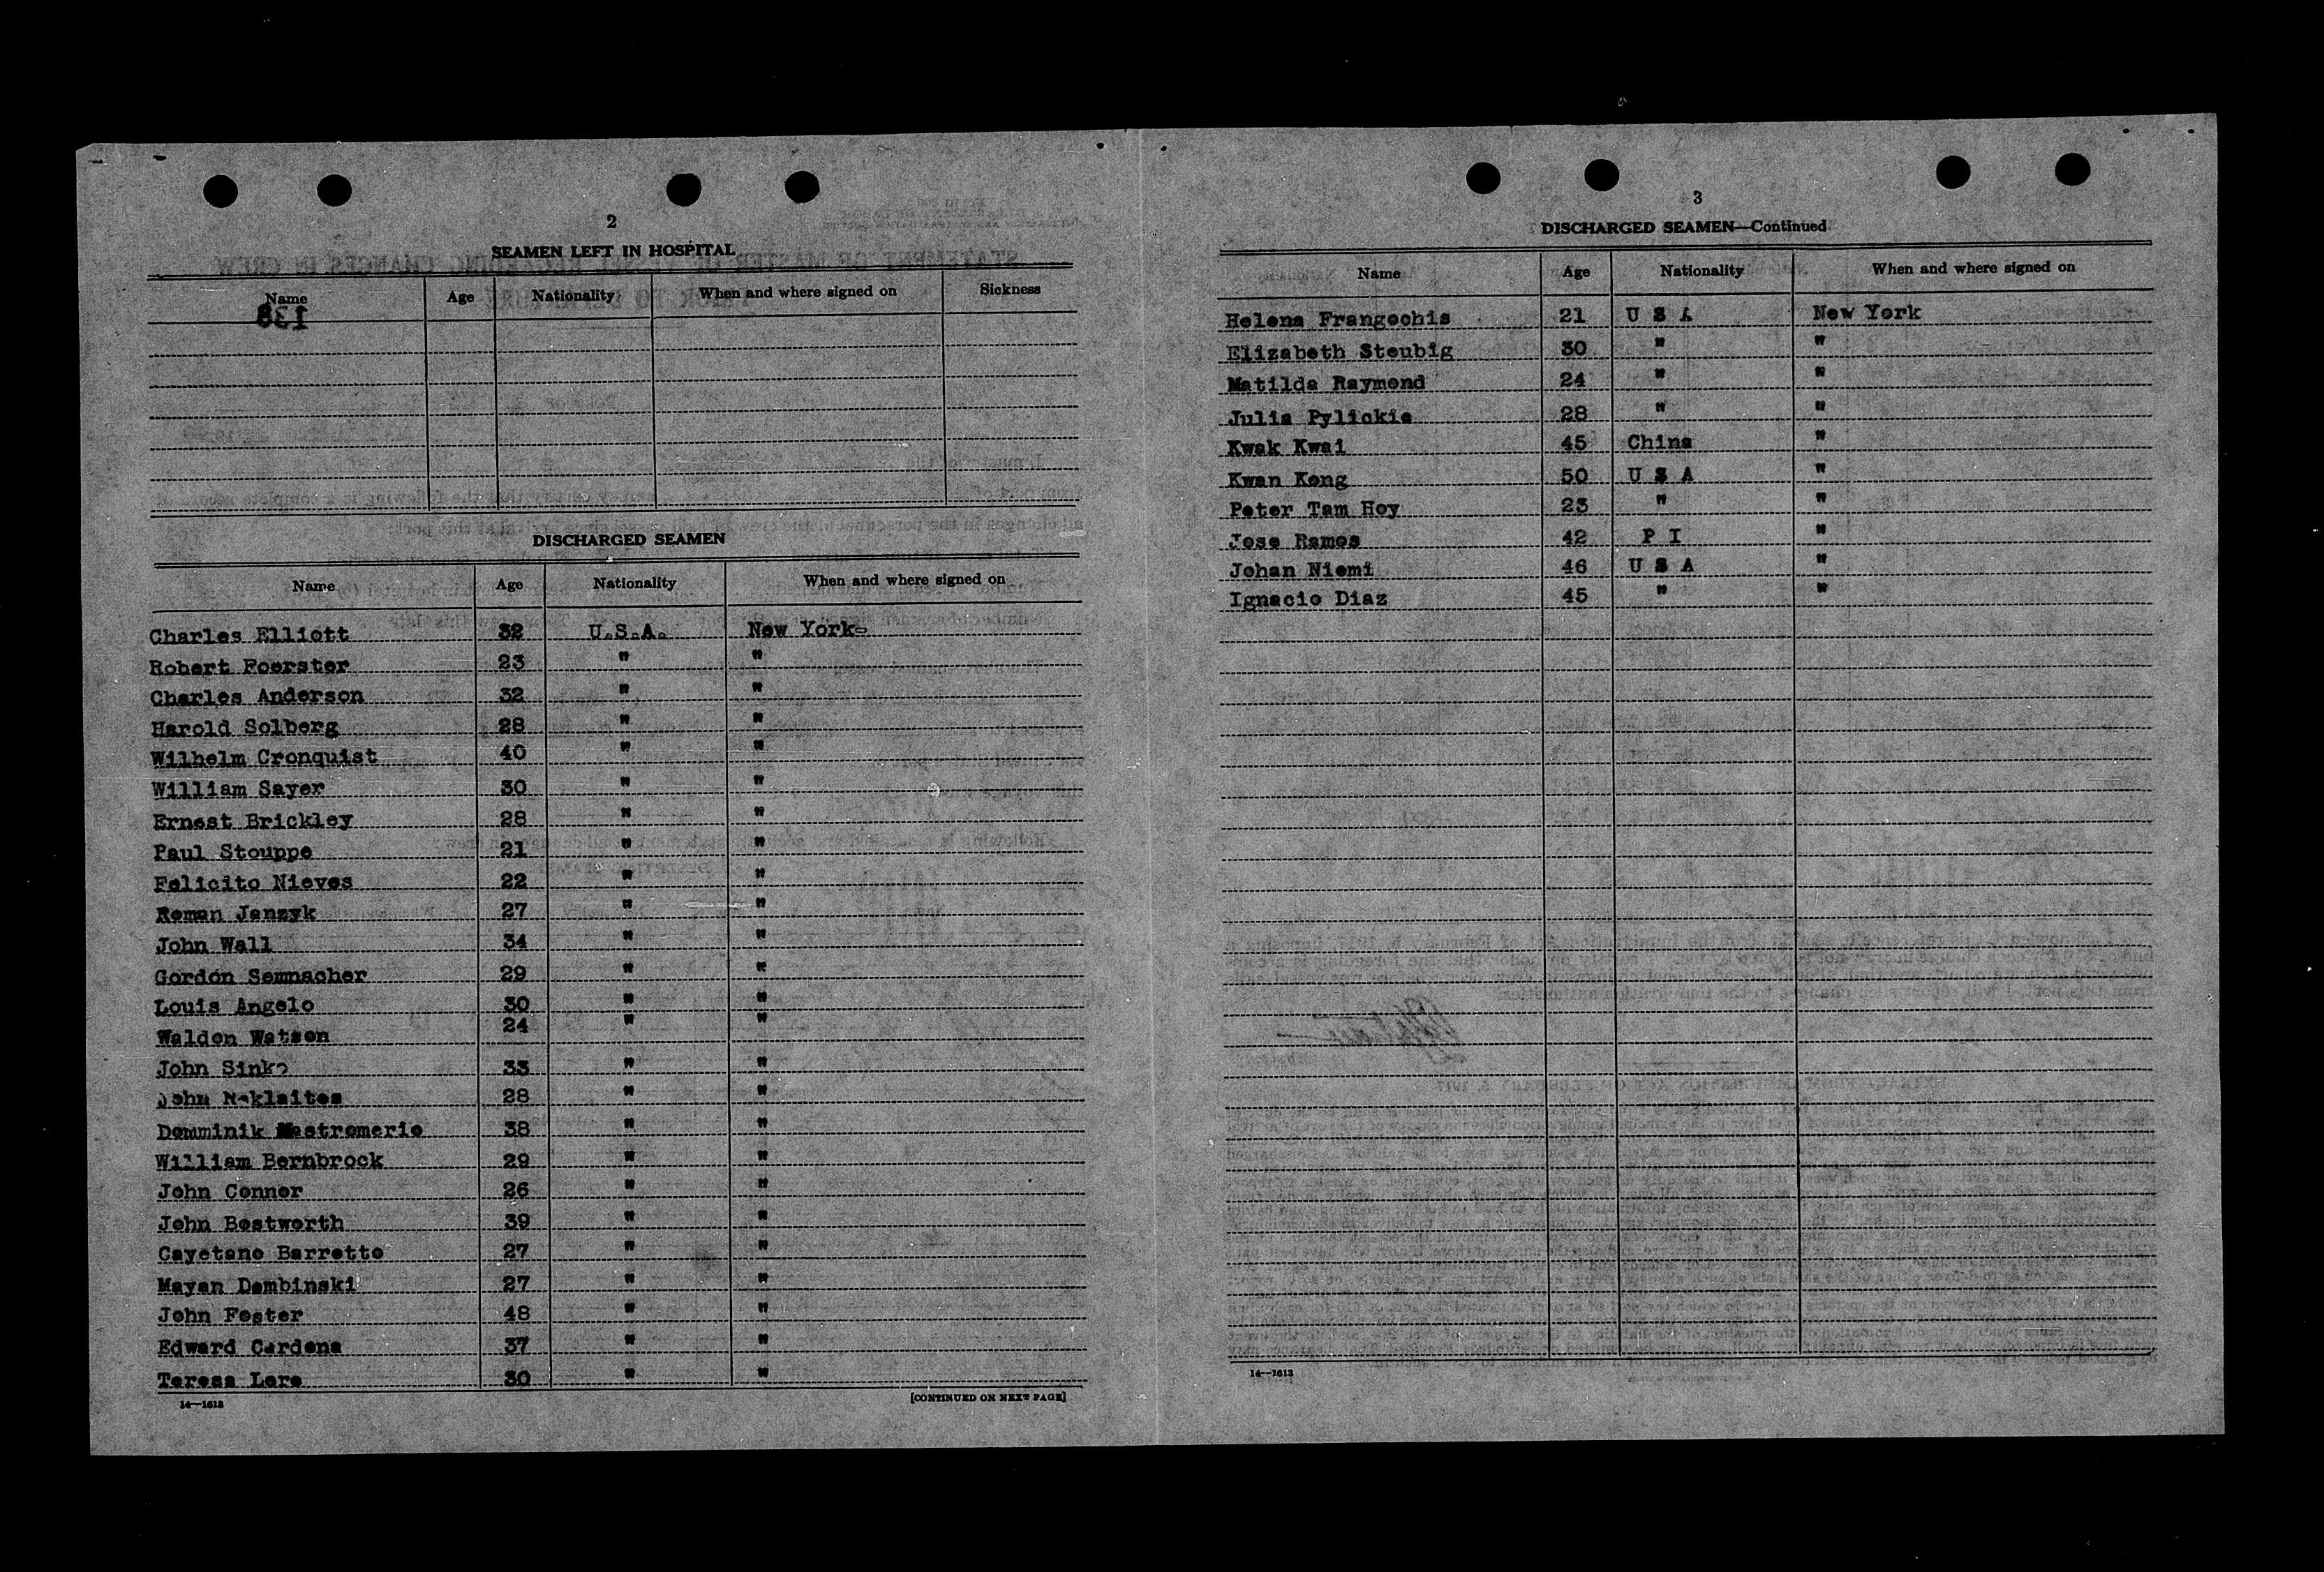 2
SEAMEN LEFT IN HOSPITAL
Name Age Nationality When and where signed on Sickness
DISCHARGED SEAMEN
Name Age Nationality When and where signed on
Charles Elliott 32 U.S.A. New York
Robert Foerster 23 " "
Charles Anderson 32 " "
Harold Solberg 28 " "
Wilhelm Cronquist 40 " "
William Sayer 30 " "
Ernest Brickley 28 " "
Paul Stouppe 21 " "
Felicito Nieves 22 " "
Roman Janzyk 27 " "
John Wall 34 " "
Gordon Semnacher 29 " "
Louis Angelo 30 " "
Waldon Watson 24 " "
John Sinko 33 " "
John 28 " "
Domminik Mastromerio 38 " "
William Bernbrock 29 " "
John Conner 26 " "
John Bestworth 39 " "
Cayetano Barretto 27 " "
Mayan Dembinski 27 " "
John Foster 48 " "
Edward Cardona 37 " "
Teresa Lore 30 " "
14—1613 [CONTINUED ON NEXT PAGE]
3
DISCHARGED SEAMEN—Continued
Name Age Nationality When and where signed on
Helena Frangochis 21 U S A New York
Elizabeth Steubig 30 " "
Matilda Raymond 24 " "
Julia Pylickie 28 " "
Kwak Kwai 45 China "
Kwan Kong 50 U S A "
Peter Tam Hoy 23 " "
Jose Ramos 42 P I "
Johan Niemi 46 U S A "
Ignacio Diaz 45 " "
14—1613